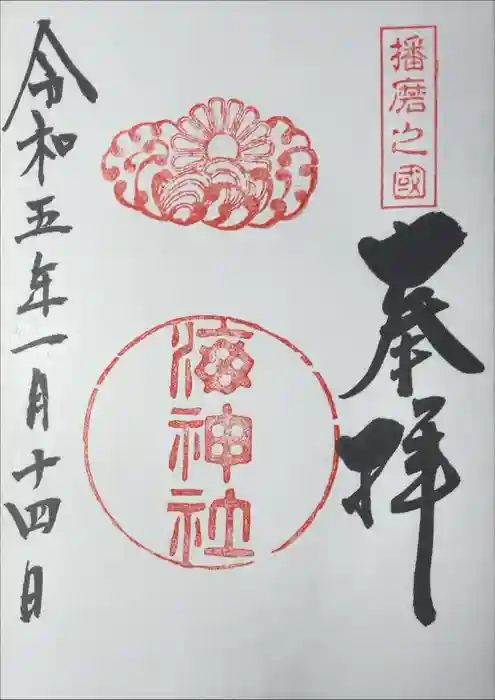 播磨之國
奉拝
海神社
令和五年一月十四日